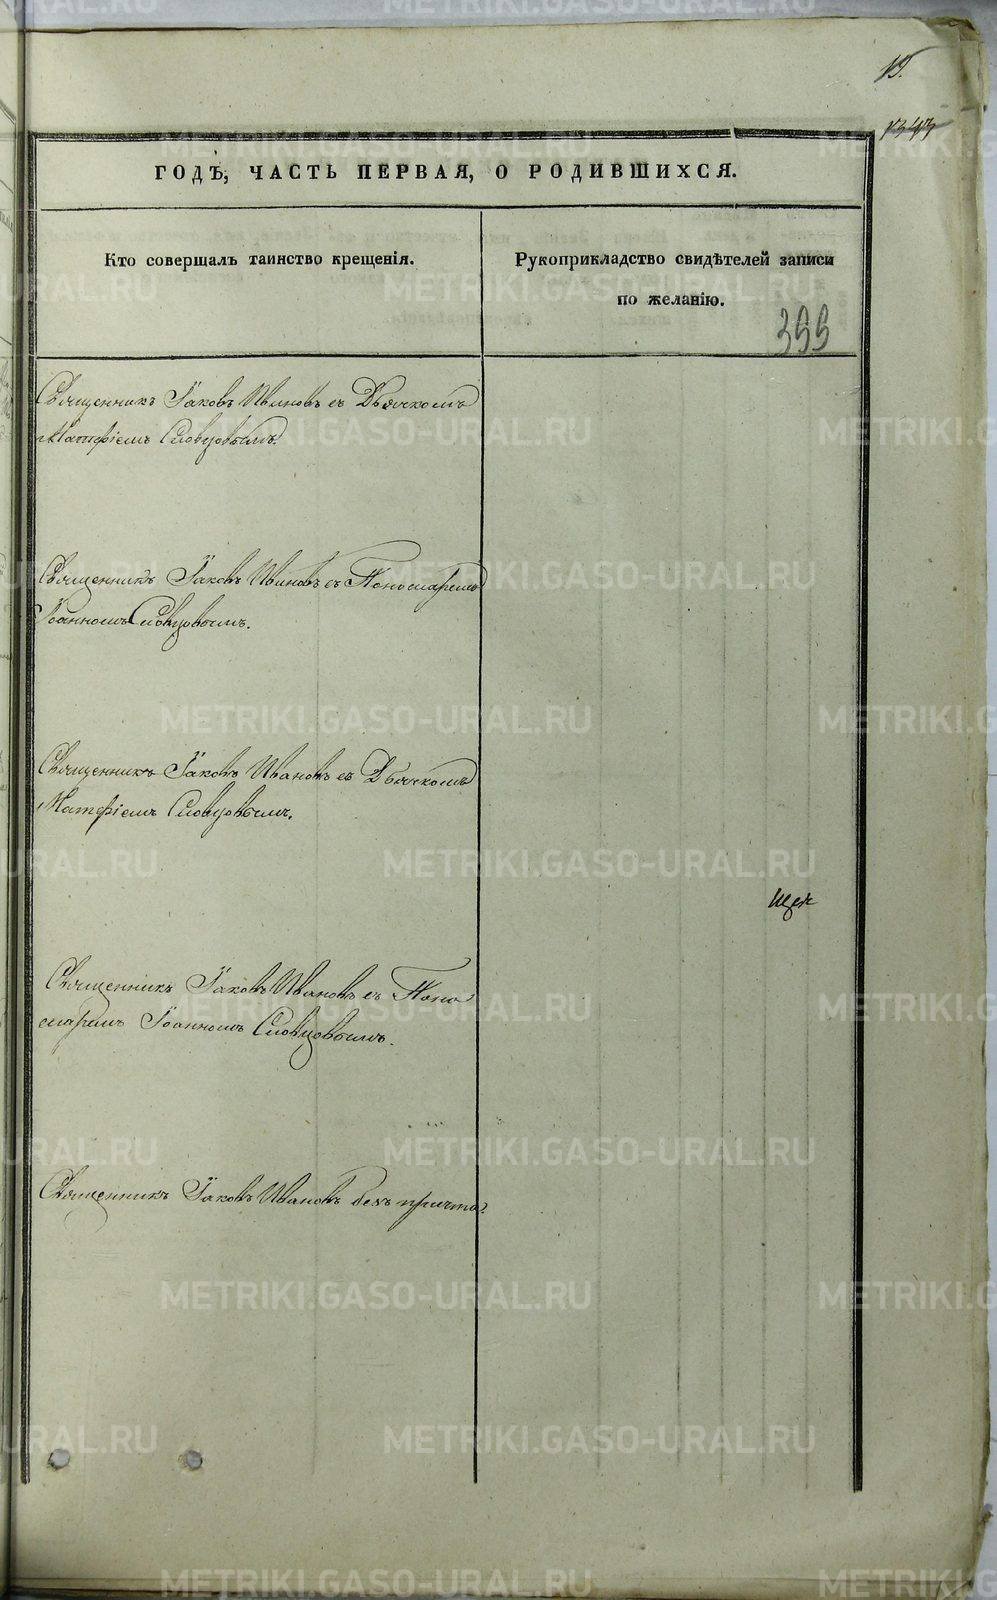 ГОДЪ, ЧАСТЬ ПЕРВАЯ, О РОДИВШИХСЯ.
Кто совершалъ таинство крещенія.
Рукоприкладство свидѣтелей записи
по желанію.
399
Священникъ Іаковъ Ивановъ съ Дьячкомъ
Матфіемъ Словцовымъ.
Священникъ Іаковъ Ивановъ съ Пономаремъ
Іоанномъ Словцовымъ.
Священникъ Іаковъ Ивановъ съ Дьячкомъ
Матфіемъ Словцовымъ.
Священникъ Іаковъ Ивановъ съ Поно
маремъ Іоанномъ Словцовымъ.
Священникъ Іаковъ Ивановъ безъ причта.
METRIKI.GASO-URAL.RU